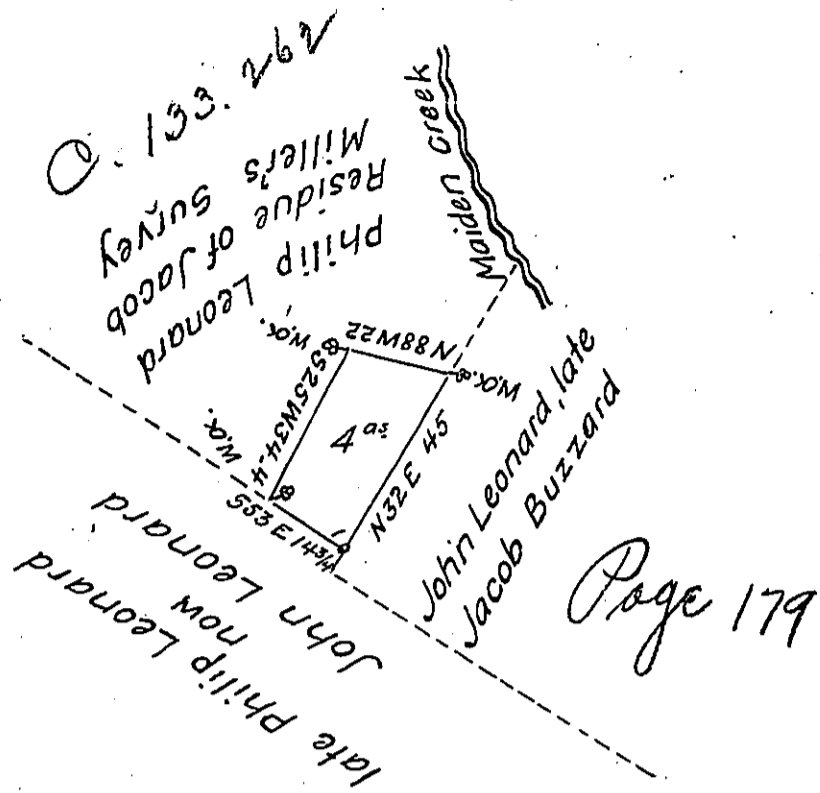 O. 133. 262
Philip Leonard
Residue of Jacob
Miller's Survey
Maiden Creek
W.O.
N88W22
W.O.
S25W34.4
4 as
N32E 45
W.O.
S53E 14 3/4
John Leonard, late
Jacob Buzzard
late Philip Leonard
now
John Leonard
Page 179